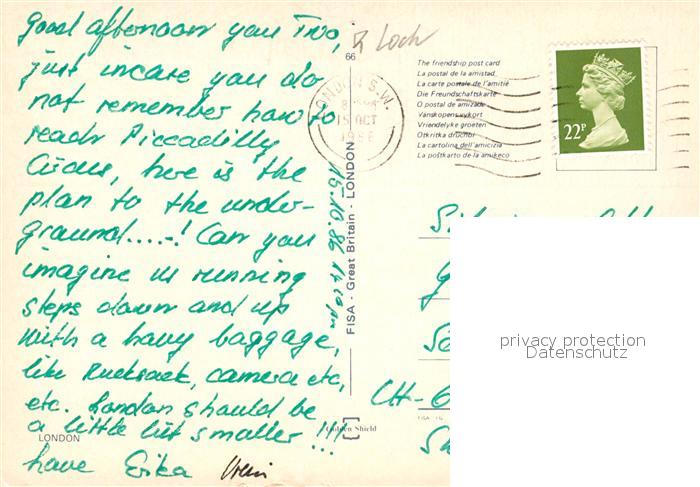 Good afternoon you Two,
just incase you do
not remember how to
reach Piccadilly
Circus, here is the
plan to the under-
ground....-! Can you
imagine us running
steps down and up
with a havy baggage,
like Rucksack, camera etc,
etc. London should be
a little bit smaller!!!
have Erika
LONDON
Loch
66
LONDON S.W.
15 OCT
1986
15.10.86
FISA - Great Britain - LONDON
Golden Shield
The friendship post card
La postal de la amistad
La carte postale de l'amitié
Die Freundschaftskarte
O postal de amizade
Vanskopens vykort
Vriendelyke groeten
Otkritka druchbi
La cartolina dell'amicizia
La postkarto de la amikeco
22P
CH-6
privacy protection
Datenschutz